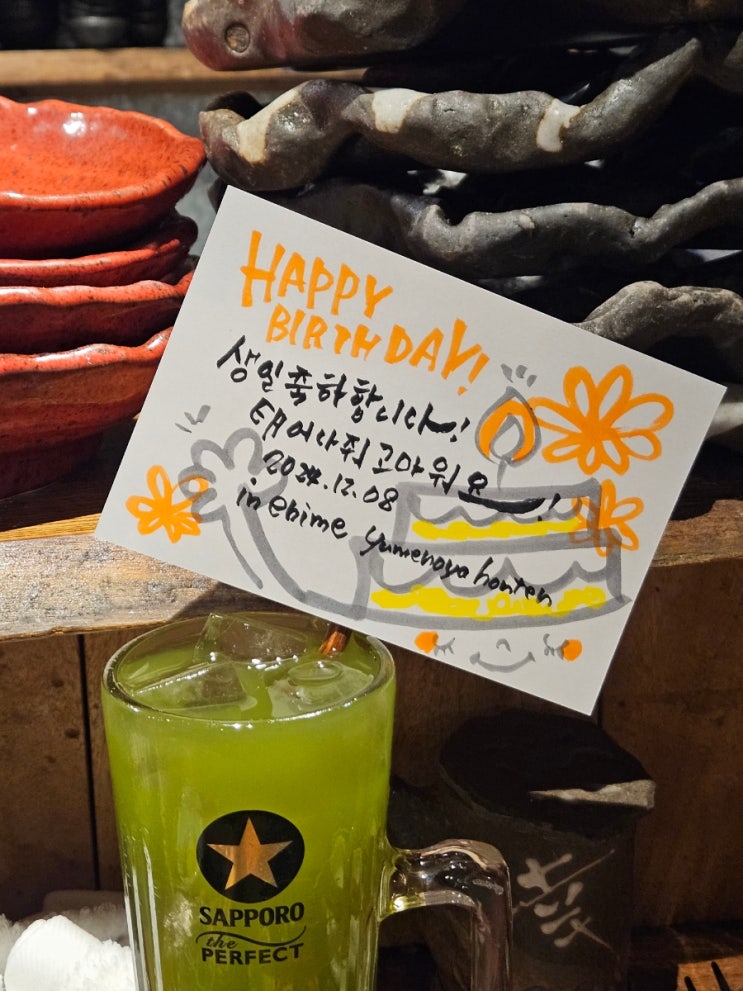 HAPPY
BIRTHDAY!
생일축하합니다~!
태어나줘 고마워요!
2024.12.08
in ehime yumenoya honten
SAPPORO
the
PERFECT